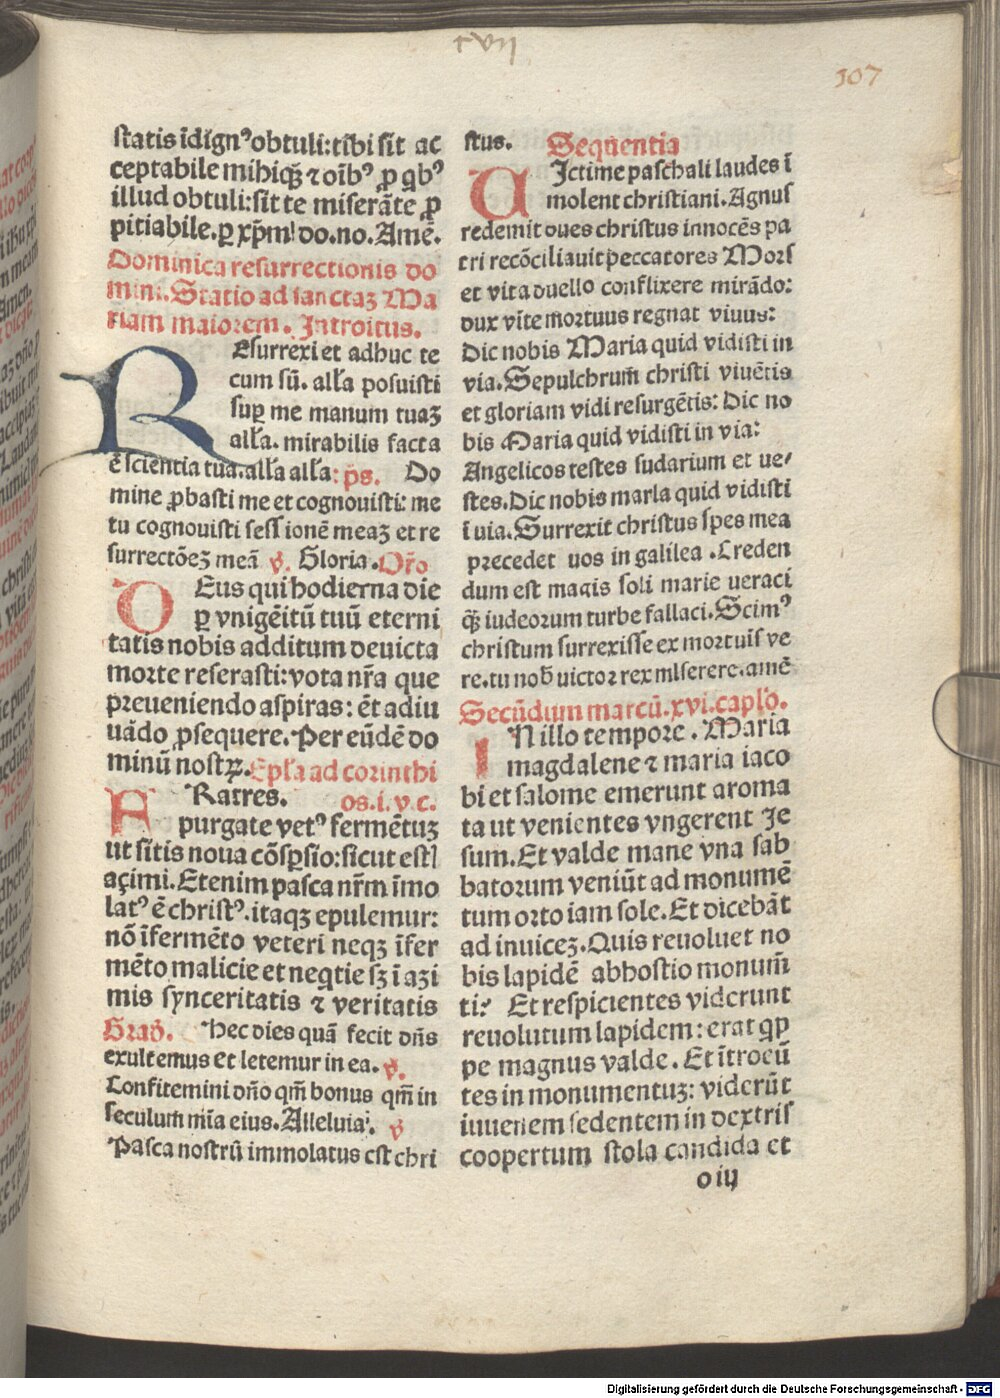 cvij
107
statis īdign⁹ obtuli: tibi sit ac
ceptabile mihiq̄ʒ ⁊ oīb⁹ ꝓ qb⁹
illud obtuli: sit te miserāte ꝓ
pitiabile. ꝑ xp̄m! do. no. Amē.
Dominica resurrectionis do
mini. Statio ad sanctaʒ Ma
riam maiorem. Introitus.
REsurrexi et adhuc te
cum sū. alľa posuisti
suꝑ me manum tuaʒ
alľa. mirabilis facta
ē scientia tua. alľa alľa: p̄s. Do
mine ꝓbasti me et cognouisti: me
tu cognouisti sessionē meaʒ et re
surrectōeʒ meā ꝟ. Gloria. Or̄o
DEus qui hodierna die
ꝑ vnigēitū tuū eterni
tatis nobis additum deuicta
morte reserasti: vota nr̄a que
preueniendo aspiras: ēt adiu
uādo ꝓsequere. Per eūdē do
minū nostꝝ. Epľa ad corinthi
FRatres. os. i. v. c.
purgate vet⁹ fermētuʒ
ut sitis noua cōsꝑsio: sicut estl
açimi. Etenim pasca nr̄m īmo
lat⁹ ē christ⁹. itaqʒ epulemur:
nō īfermēto veteri neqʒ īfer
mēto malicie et neqtie sʒ ī aʒi
mis synceritatis ⁊ veritatis
Grad̄. Hec dies quā fecit dn̄s
exultemus et letemur in ea. ꝟ.
Confitemini dn̄o qm̄ bonus qm̄ in
seculum mīa eius. Alleluia. ꝟ
Pasca nostrū immolatus est chri
stus. Sequentia
UIctime paschali laudes ī
molent christiani. Agnus
redemit oues christus innocēs pa
tri recōciliauit peccatores Mors
et vita duello conflixere mirādo:
dux vite mortuus regnat viuus:
Dic nobis Maria quid vidisti in
via. Sepulchrum̄ christi viuētis
et gloriam vidi resurgētis: Dic no
bis Maria quid vidisti in via:
Angelicos testes sudarium et ue/
stes. Dic nobis maria quid vidisti
ī uia. Surrexit christus spes mea
precedet uos in galilea. Creden
dum est magis soli marie ueraci
q̄ʒ iudeorum turbe fallaci. Scim⁹
christum surrexisse ex mortuis ve
re. tu nob̄ uictor rex miserere. amē
Secūdum marcū. xvi. capľo.
IN illo tempore. Maria
magdalene ⁊ maria iaco
bi et salome emerunt aroma
ta ut venientes vngerent Je
sum. Et valde mane vna sab
batorum veniūt ad monumē
tum orto iam sole. Et dicebāt
ad inuiceʒ. Quis reuoluet no
bis lapidē abhostio monum̄
ti? Et respicientes viderunt
reuolutum lapidem: erat qꝑ
pe magnus valde. Et ītroeū
tes in monumentuʒ: viderūt
iuuenem sedentem in dextris
coopertum stola candida et
o iij
Digitalisierung gefördert durch die Deutsche Forschungsgemeinschaft - DFG